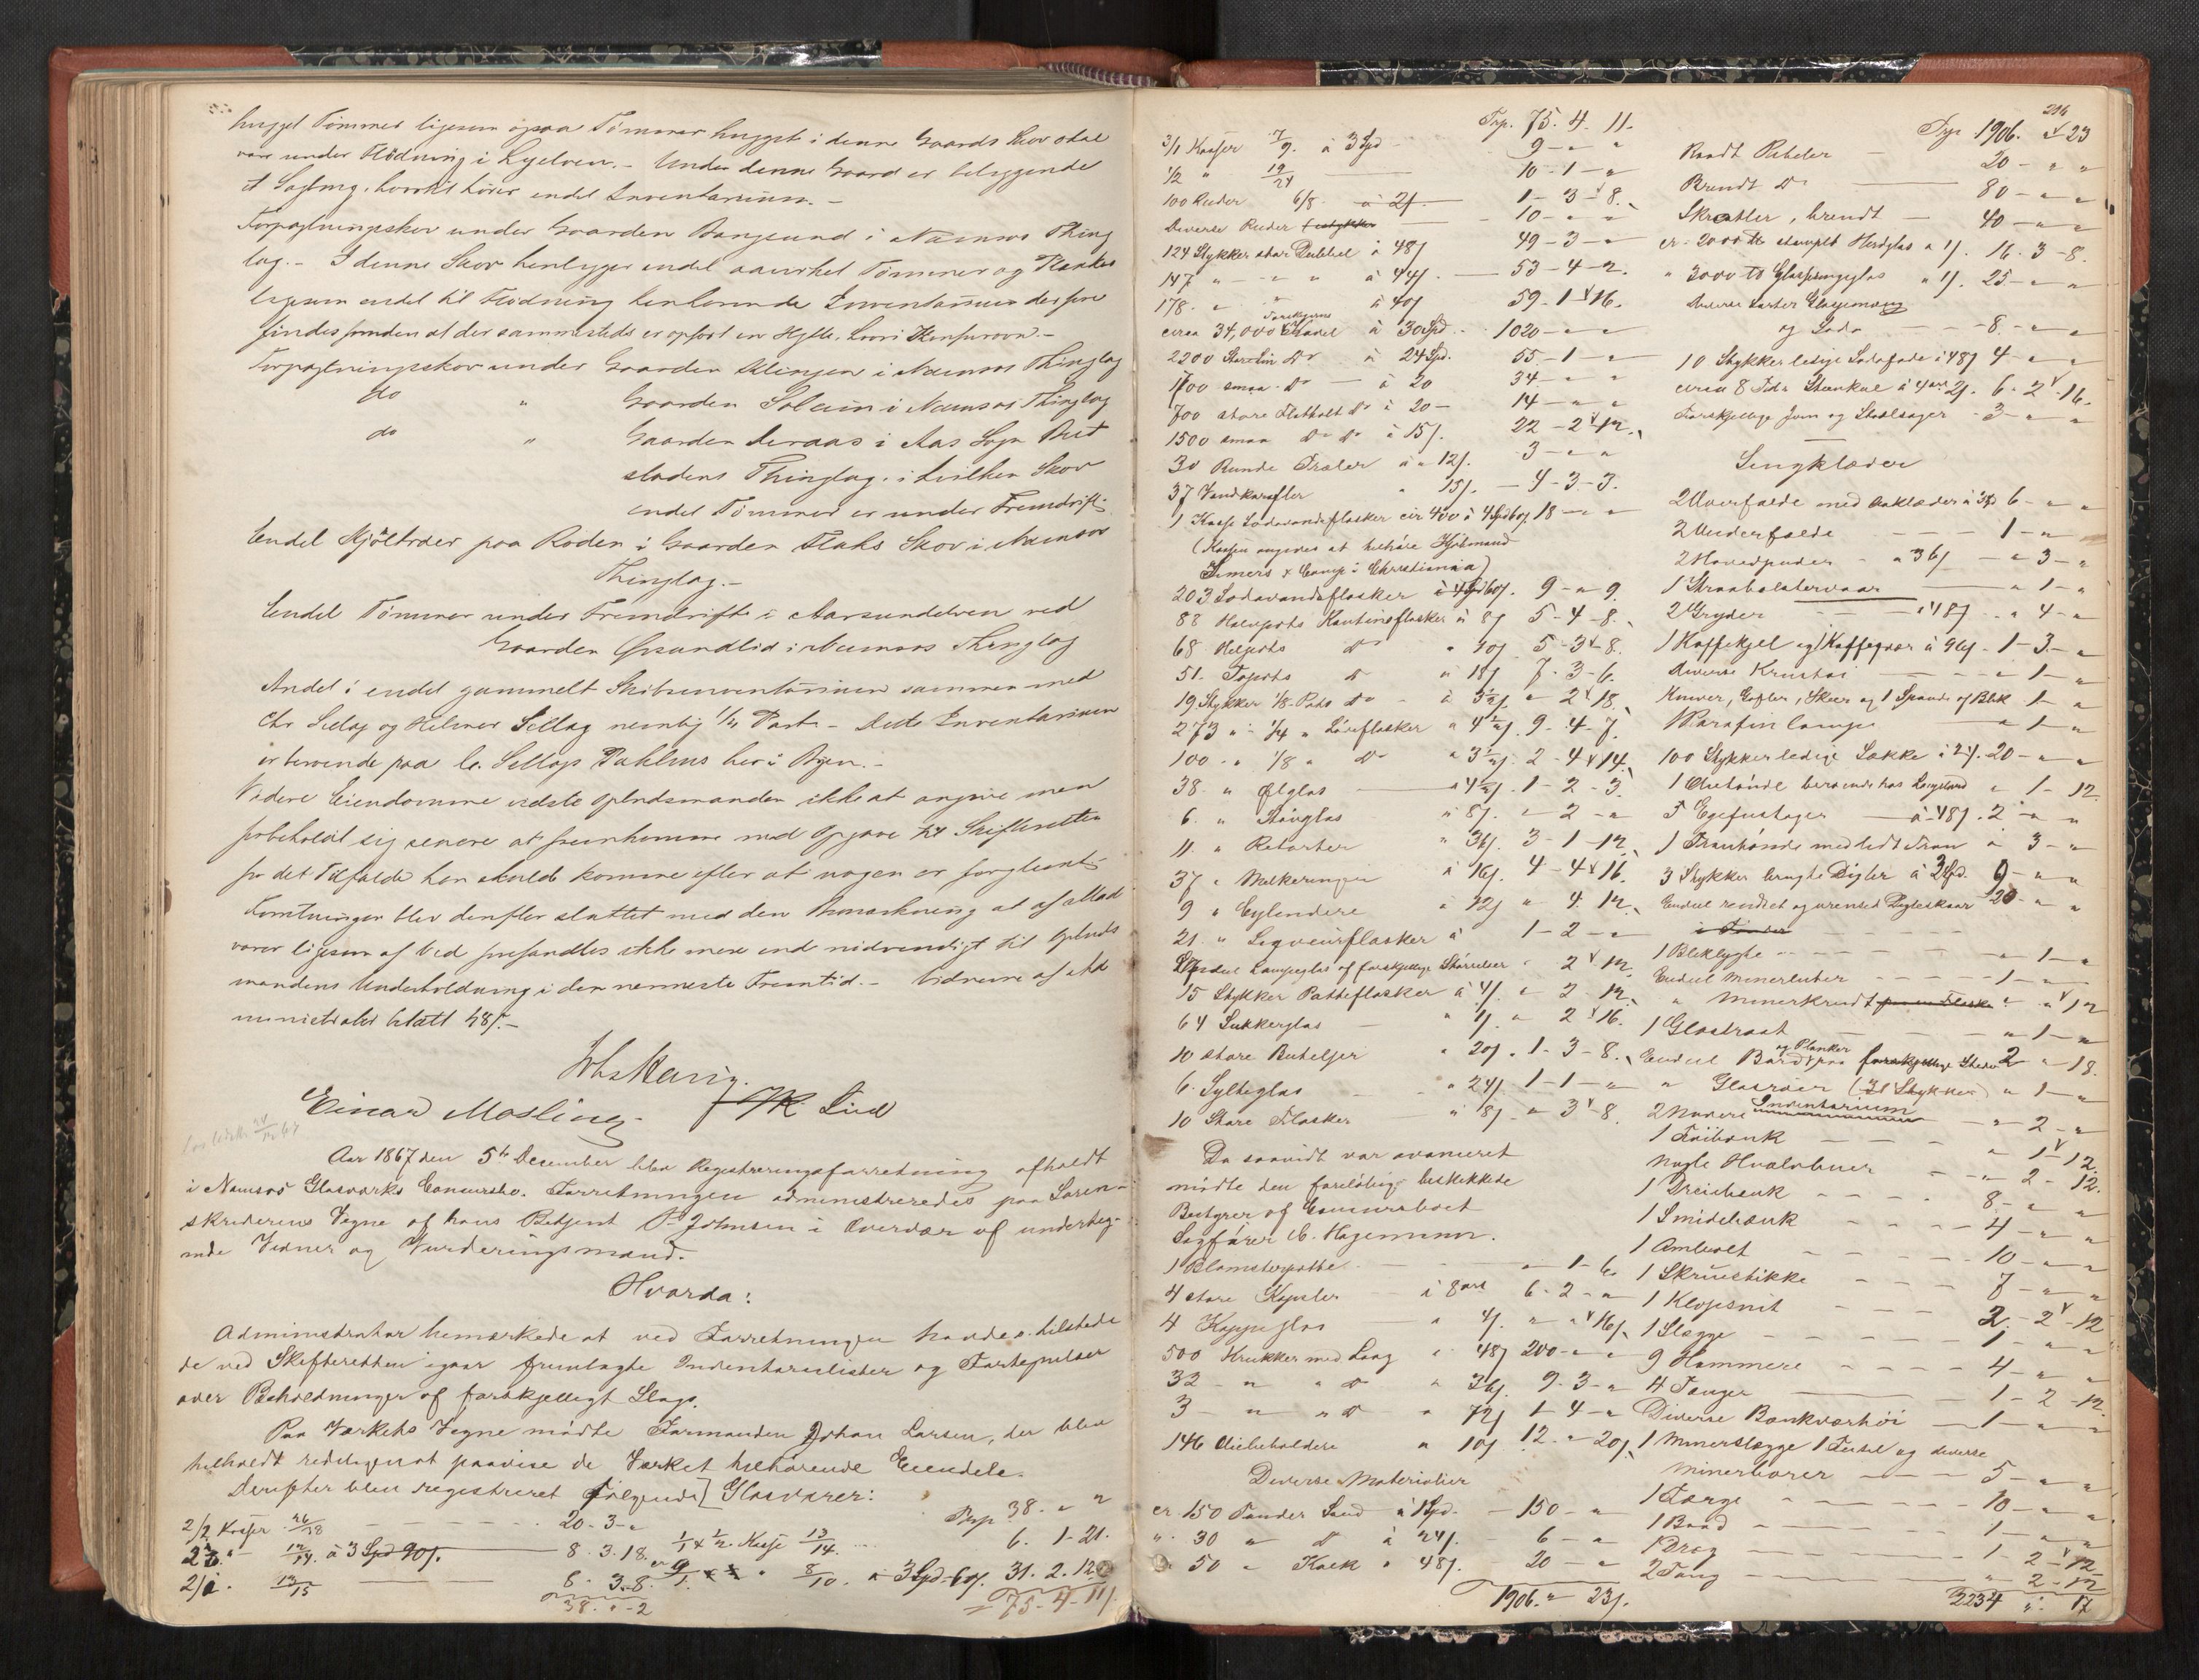 hugget Tømmer ligesom ogsaa Tømmer hugget i denne Gaards Skov skal
være under Flødning i Lyelven. - Under denne Gaard er beliggende
et Sagbrug, hvortil hører endel Inventarium. -
Forpagtningsskov under Gaarden Bangsund i Namsos Thing
lag. - I denne Skov henligger endel aavirket Tømmer og Planker
ligesom endel til Flødning henhørende Inventarium desforu
findes foruden at der sammesteds er opført en Hytte,
Forpagtningsskov under Gaarden Klingen i Namsos Thinglag
do " Gaarden Solem i Namsos Thinglag
do " Gaarden Aeraas i Aas Sogn Bet
stadens Thinglag, i hvilken Skov
endel Tømmer er under Fremdrift.
Endel Kjøltræer paa Roden i Gaarden Flaks Skov i Namsos
Thinglag. -
Endel Tømmer under Fremdrift i Aarsundelven ved
Gaarden Øisundlid i Namsos Thinglag
Andel i endel gammelt Skibsinventarium sammen med
Chr. Sellæg og Hilmar Sellæg nemlig 1/4 Part - Dette Inventarium
er beroende paa Chr. Sellægs Pakhus her i Byen. -
Videre Eiendomme vidste Opbudsmanden ikke at angive men
forbeholdt sig senere at fremkomme med Opgave til Skifteretten
for det Tilfælde han skulde komme efter at nogen er forglemt
Forretningen blev derefter sluttet med den Bemærkning at af Mad
varer ligesom af Ved forefandtes ikke mere end nødvendigt til Opbuds
mandens Underholdning i den nærmeste Fremtid. - Vidnerne af Ad
ministrator betalt 48 s. -
Einar Mosling. Lind
Aar 1867 den 5te December blev Registreringsforretning afholdt
i Namsos Glasværks Concursbo. Forretningen administreredes paa Soren-
skriverens Vegne af hans Betjent P. Johnsen i Overvær af underteg-
nede Vidner og Vurderingsmænd.
Hvorda:
Administrator bemærkede at ved Forretningen havdes tilstede
de ved Skifteretten igaar fremlagte Inventarielister og Fortegnelser
over Beholdninger af forskjelligt Slags.
Paa Værkets Vegne mødte Formanden Johan Larsen, der blev
tilholdt redeligen at paavise de Værket tilhørende Eiendele.
Derefter blev registreret Følgende Glasvarer:
2/2 Kasser 26/28 - 20-3-"
12/14 à 3 Spd 90 s. 8.3.18.
2/1 13/15 8. 3.8.
38. " -2
Trsp 38. " "
1/1 x 1/2 Kasse 13/14 6. 1-21.
8/10. à 3 Spd 60 s. 31. 2. 12
75-4-11 s.
Trsp. 75. 4. 11.
3/1 Kasser 7/9. à 3 Spd - 9 - " "
1/2 " 19/24 10-1-"
100 Ruder 6/8 à 2 s. 1-3-8.
Diverse Ruder 10-"-"
124 Stykker store Dubbel à 48 s 49-3-"
147 " - " " à 44 s. 53-4-2.
178. " " à 40 s 59-1-16.
circa 34,000 à 30 Spd. 1020-"-"
2200 Store Lin Do à 24 Spd. 55-1-"
1700 smaa Do - à 20 34-"-"
700 store Flatholt Do à 20 - 14-"-"
1500 smaa Do Do à 15 s. 22-2-12.
30 Runde à 12 s. 3-"-"
37 Vandkarafler " 15 s. - 4-3-3.
1 Kasse Sodavandsflasker cir 400 à 4 Spd 60 s 18-"-"
(Kassen angives at tilhøre
& Comp i Christiania)
203 Sodavandsflasker à 4 Spd 60 s. 9-"-9.
88 Halvpots Kantineflasker à 8 s 5-4-8.
68 Helpots Do " 10 s 5-3-8.
51. Topots D " 18 s 7-3-6.
19 Stykker 1/8 Pots Do - à 3 1/2 s " 2-18.
273 " - 1/4 " Løveflasker " 4 1/2 s. 9-4-7.
100 " 1/8 " Do " 3 1/2 s. 2-4-14.
38. " Ølglas " 4 1/2 s. 1-2-3.
6. " Støvglas " 8 s. " 2-"
11. " Retorter " 36 s. 3-1-12
37 " Melkeringer à 16 s. 4-4-16.
9 " Cylendere à 12 s " 4. 12.
21. " Liqveurflasker à 1-2-"
Endeel Lampeglas af forskjellige Størrelser " 2-12.
15 Stykker Patteflasker à 4 s. " 2-12
64 Sukkerglas - " 1 s. " 2-16.
10 store Buteljer " 20 s. 1-3-8.
6. Sylteglas " 24 s. 1-1-"
10 Store Flasker " 8 s - " 3-8
Da saavidt var avanceret
mødte den foreløbig beskikkede
Bestyrer af Concursboet
Sagfører C. Hagemann.
1 Blomsterpotte - " 1-6
4 store Kupeler - à 8 ort 6-2-"
4 Koppeglas " 4 s. " " 16 s
500 Krukker med Laag " 48 s 200-"-"
32 - " " Do " 36 s. 9-3-"
3 - " " D " 72 s 1-4-"
146 " 10 s 12. " 20 s
Diverse Materialier
cr 150 Tønder Sand à 1 Spd. - 150-"
" 30 " D à 24 s. - 6-"
" 50 " Kalk " 48 s. 20-"
1906. " 23 s.
216
Trsp 1906. " 23
Raadt Pibeler 20-" "
Brendt Do 80-" "
Skratler, brendt - 40-" "
cr. 2000 stamplet Herdglas à 1 s. 16. 3-8.
" 3000 Glas " 1 s. 25-" "
Diverse sorter Glasgemæng
og Soda - 8. " "
10 Stykker ledige Sodafade à 48 s 4-" "
circa 8 Tdr Steenkul à 4 ort 2 s. 6-2-16.
Forskjellige Jern og Staalsager - 3-" "
Sengklæder
2 Overfælde med Aaklæder à 3 Spd 6-" "
2 Underfælde 1-" "
2 Hovedpuder " 36 s - " 3-"
1 Straabolstervaar " 1-"
2 Gryder à 48 s " 4-"
1 Kaffekjel og 1 Kaffeqvær à 96 s - 1-3-"
diverse Krustøi " 1-"
Knive, Gafler, Skeer og 1 Spand af Blik 1- "
1 Parafin lampe " 1-"
100 Stykker ledige Sække à 24 s. 20-" "
1 Olietønde beroende hos " 1-12.
5 Egefustager - à 48 s. 2-" "
1 Trantønde med lidt Tran à 3-"
3 Stykker brugte Digler à 3 Spd. 9-" "
Endeel rendset og urenset Digleskaar 20-" "
1 Bliklygte " 1-"
Endeel Minerlunter 1-"
" Minerkrudt " 12
1 Glastraat " 1-"
Endeel Bord og Planker paa forskjellige Steder 2 " 18.
" Glasrøer (31 Stykker) " 1-"
Inventarium
2 " 2-"
1 Feilbænk " 1-12.
Nogle " 2-12.
1 Dreiebænk 8-" "
1 Smidebænk 4-" "
1 Ambolt 10-" "
1 Skruestikke 7-" "
1 Klopsnit 2-2-12
1 Slægge 1-" "
9 Hammere 4-" "
4 Tænger 1-2-12.
Diverse Bænkværktøi - 1-" "
1 Minerslægge 1 Feisel og diverse
Minerborer 5-" "
1 Færge 10-" "
1 Baad 1-" "
1 Drag 1-2-12
2 Tang " 2-12
2234 " 17